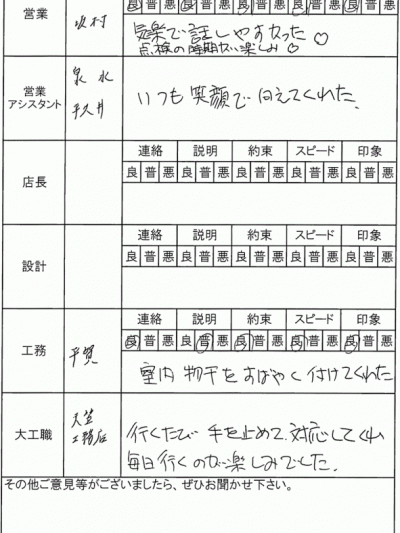 営業
坂村
良 普 悪 良 普 悪 良 普 悪 良 普 悪 良 普 悪
気楽で話しやすかった♡
点検の時期が楽しみ♡
営業
アシスタント
泉水
平久井
いつも笑顔で向えてくれた。
店長
連絡 説明 約束 スピード 印象
良 普 悪 良 普 悪 良 普 悪 良 普 悪 良 普 悪
設計
連絡 説明 約束 スピード 印象
良 普 悪 良 普 悪 良 普 悪 良 普 悪 良 普 悪
工務
平賀
連絡 説明 約束 スピード 印象
良 普 悪 良 普 悪 良 普 悪 良 普 悪 良 普 悪
室内物干をすばやく付けてくれた
大工職
天笠
工務店
行くたび手を止めて対応してくれ
毎日行くのが楽しみでした。
その他ご意見等がございましたら、ぜひお聞かせ下さい。